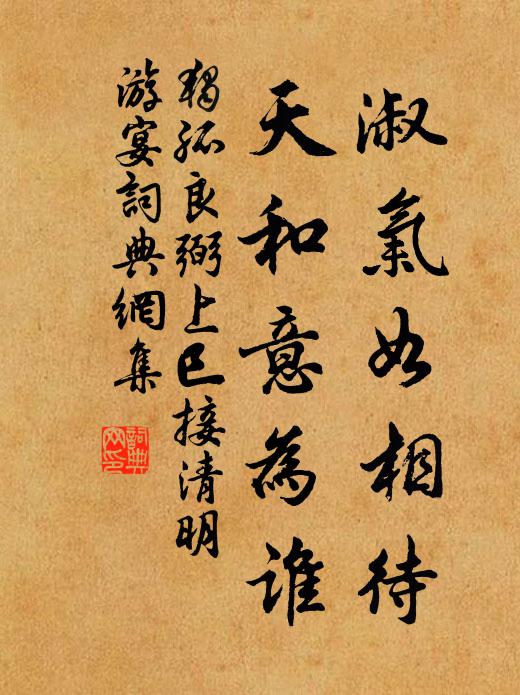 淑氣如相待
天和意為誰
獨孤良弼上巳接清明
游宴詞典網集
詞典
网印